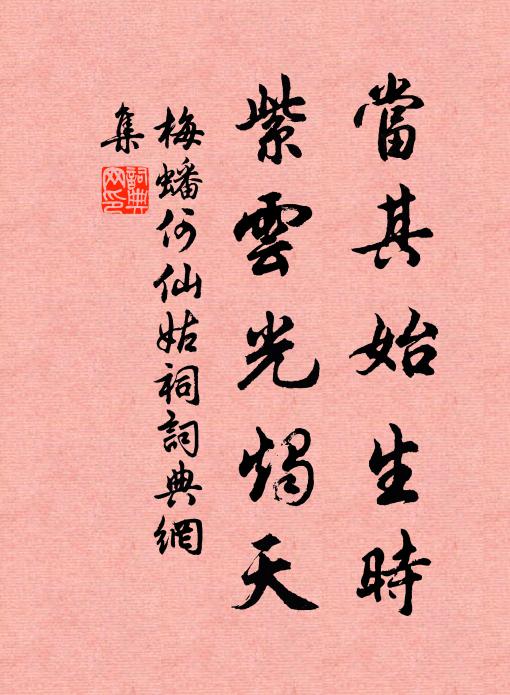 當其始生時
紫雲光燭天
梅蟠何仙姑祠詞典網
集
詞典网印